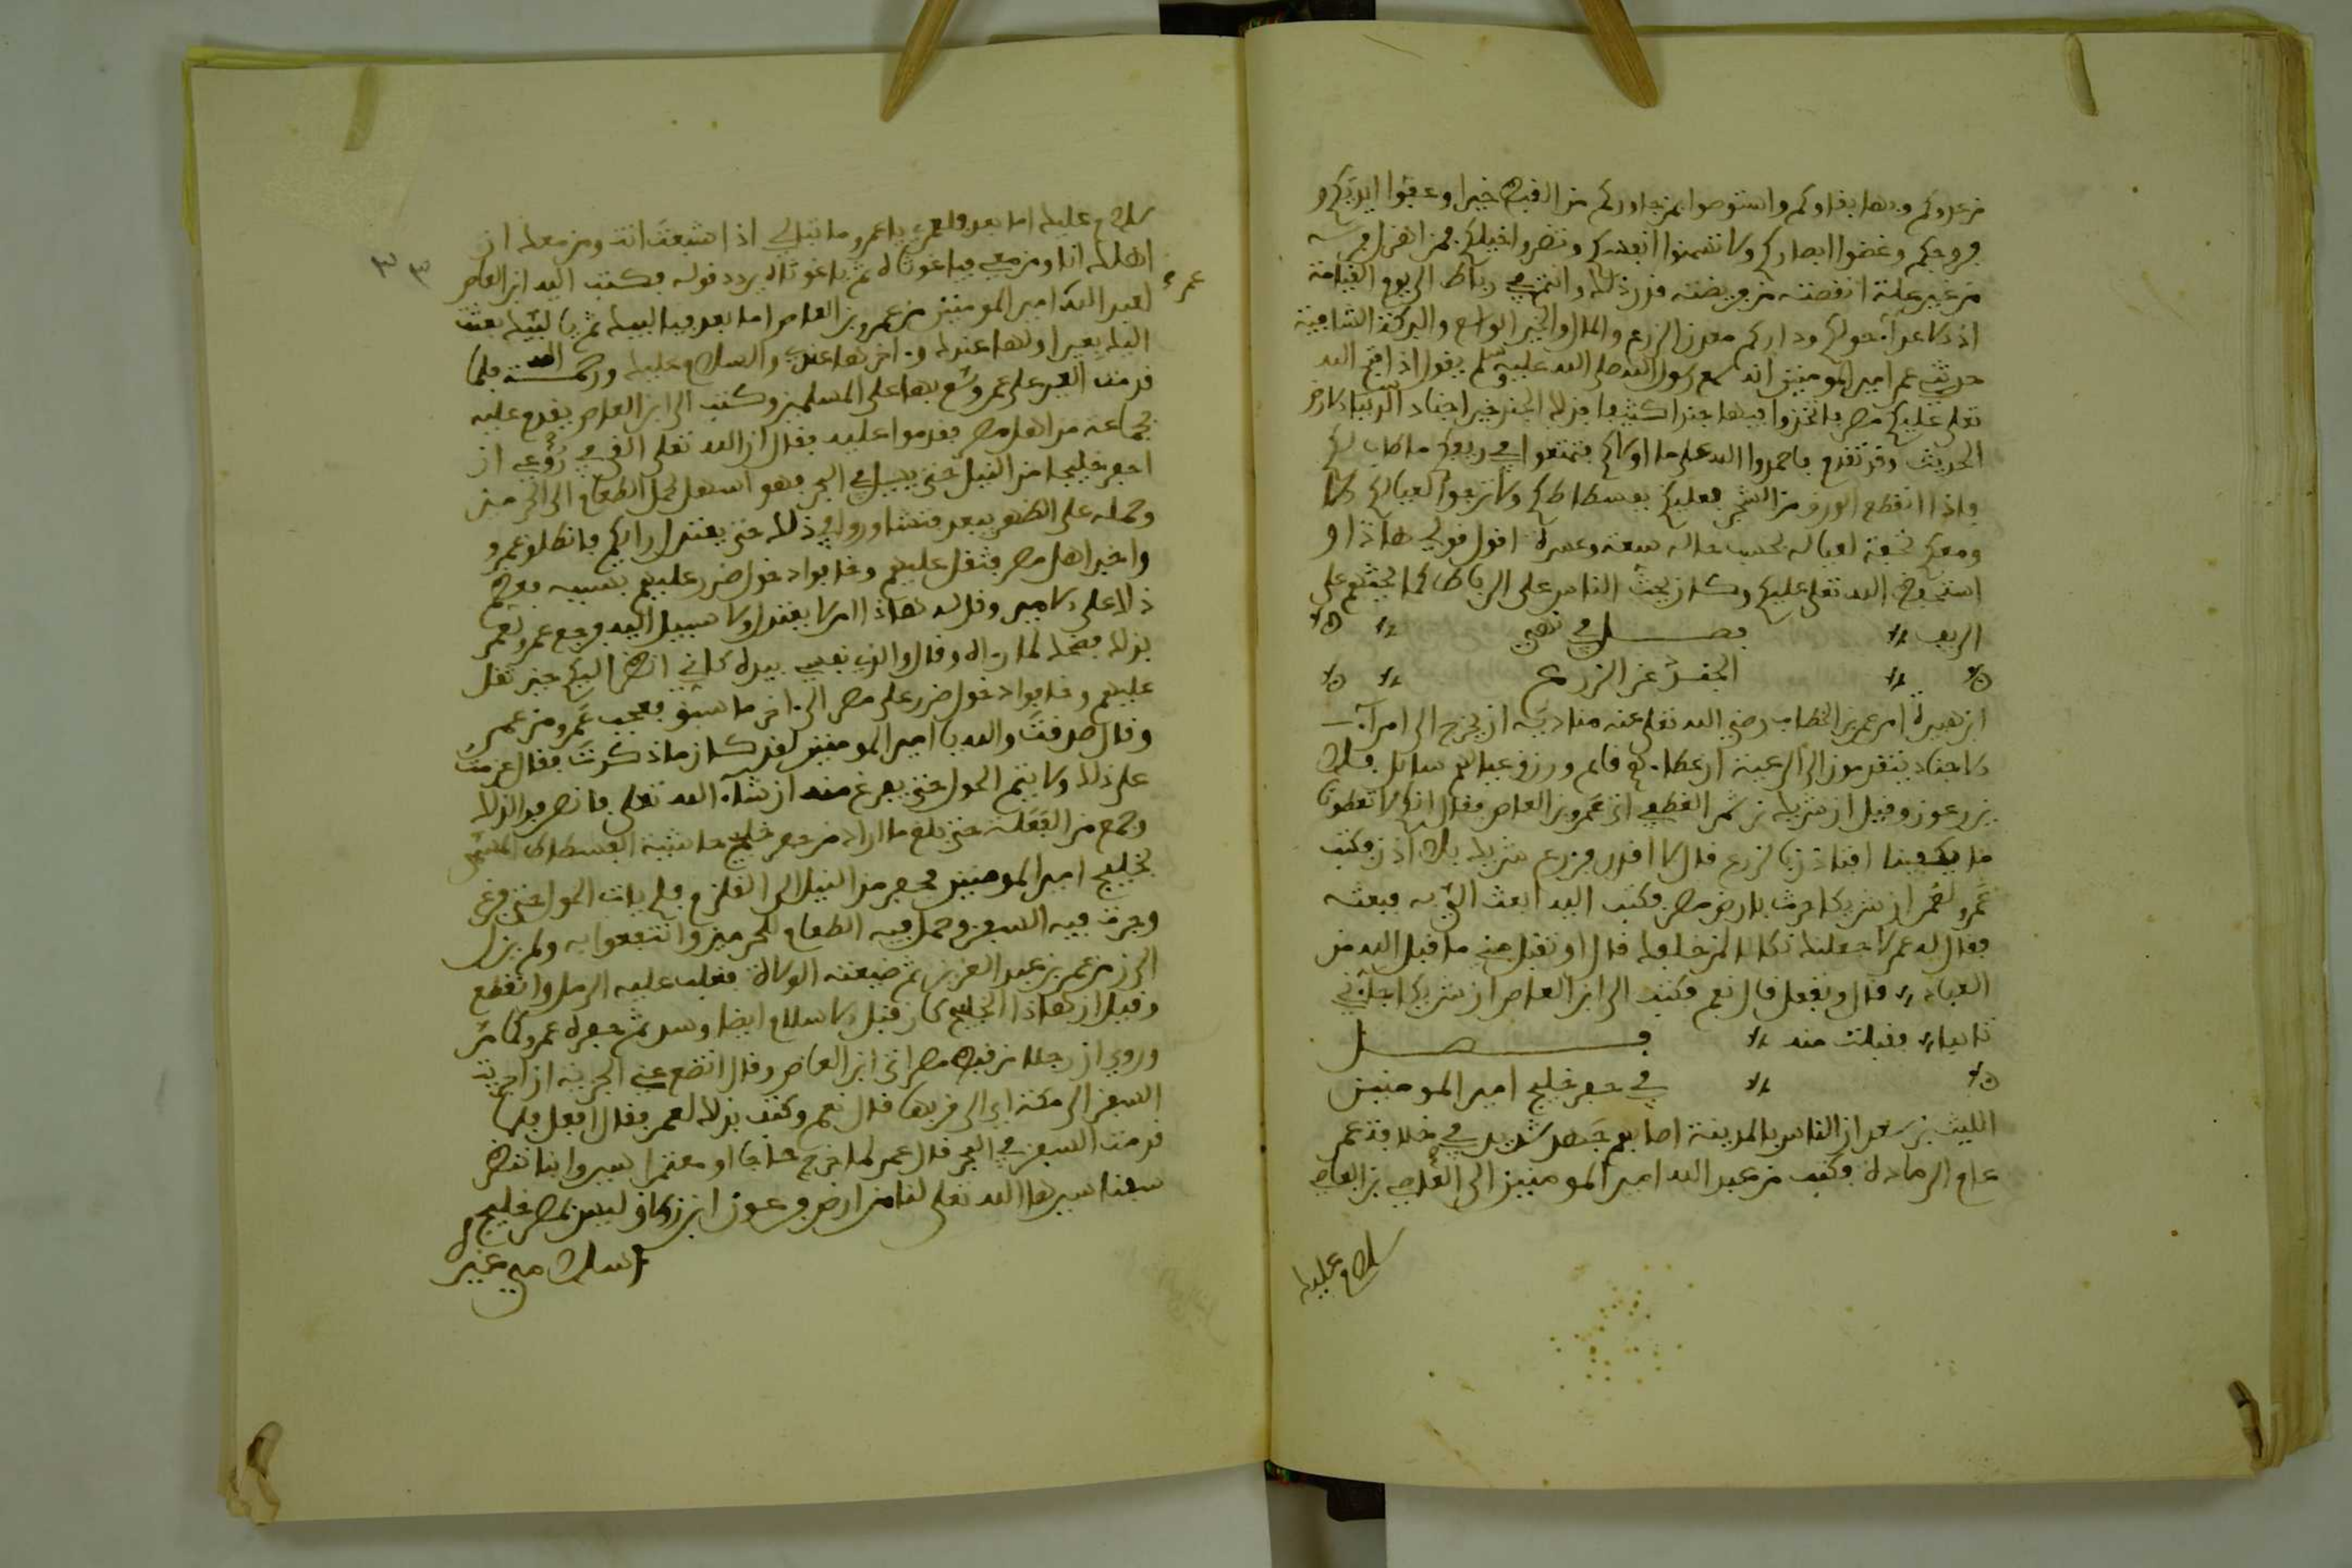 من عدوكم وبها بقاؤكم واستوصوا بمن جاوركم من القبط خيرا وعفوا ايديكم و
فروجكم وغضوا ابصاركم ولا تسمنوا انفسكم وتهزلوا خيلكم فمن اهزل فرسه
من غير علة انقصته من فريضته قدر ذلك وانتم في رباط الى يوم القيامة
اذ الاعداء حولكم وداركم معدن الزرع والمال والخير الواسع والبركة النامية
حدثني عمر امير المومنين انه سمع رسول الله صلى الله عليه وسلم يقول اذا فتح الله
تعلى عليكم مصر فاتخذوا فيها جندا كثيفا فذلك الجند خير اجناد الارض
الحديث وقد تقدم فاحمدوا الله على ما اولاكم فتمتعوا في ريفكم ما طاب لكم
واذا انقطع الورق من الشجر فعليكم بفسطاطكم ولا ترجعوا لعيالكم الا
ومعكم تحفة لعياله بحسب حاله سعة وعسرة اقول قولي هاذا و
استحفظ الله تعلى عليكم وكان يحث الناس على الرباط كما يحثهم على
الريف فصل في نهي
الجند عن الزرع
ابن هبيرة امر عمر بن الخطاب رضي الله تعلى عنه مناديه ان يخرج الى امرآء
الاجناد يتقدمون الى الرعية ان عطاءهم قايم ورزق عيالهم سايل فلا
يزرعون وقيل ان شريك بن سمي الغطيفي اتى عمرو بن العاص فقال انكم لا تعطونا
ما يكفينا افتاذن بالزرع قال لا اقدر فزرع شريك بلا اذن فكتب
عمرو لعمر ان شريكا حرث بارض مصر فكتب اليه ابعث الي به فبعثه
فقال له عمر لاجعلنك نكالا لمن خلفك قال او تقبل مني ما قبل الله من
العباد قال وتفعل قال نعم فكتب الى ابن العاص ان شريكا جآءني
تايبا فقبلت منه فصل
في حفر خليج امير المومنين
الليث بن سعد ان الناس بالمدينة اصابهم جهد شديد في خلافة عمر
عام الرمادة فكتب من عبد الله امير المومنين الى العاصي بن العاصي
سلام عليك
سلام عليك اما بعد فلعمري يا عمرو ما تبالي اذا شبعت انت ومن معك ان
عمرو
اهلك انا ومن معي فياغوثاه ثم ياغوثاه يردد قوله فكتب اليه ابن العاص
لعبد الله امير المومنين من عمرو بن العاص اما بعد فيا لبيك ثم يا لبيك بعثت
اليك بعير اولها عندك وءاخرها عندي والسلام عليك ورحمة الله فلما
قدمت العير على عمر وسع بها على المسلمين وكتب الى ابن العاص يقدم عليه
بجماعة من اهل مصر فقدموا عليه فقال ان الله تعلى القى في روعي ان
احفر خليجا من النيل حتى يسيل في البحر فهو اسهل لحمل الطعام الى الحرمين
وحمله على الظهر يبعد فتشاوروا في ذلك حتى يعتدل رايكم فانطلق عمرو
واخبر اهل مصر فثقل عليهم وخافوا دخول ضرر عليهم بسببه فعظم
ذلك على الامير وقل له هاذا امر لا يعتدل ولا سبيل اليه فرجع عمرو لعمر
بذلك فضحك لما رءاه وقال والذي نفسي بيده كاني انظر اليكم حين ثقل
عليهم وخافوا دخول ضرر على مصر الى ءاخر ما سبق فعجب عمرو من عمر
وقال صدقت والله يا امير المومنين لقد كان ما ذكرت فقال عزمت
على ذلك ولا يتم الحول حتى يفرغ منه ان شآء الله تعلى فانصرفوا لذلك
وجمع من الفعلة حتى بلغ ما اراد من حفر خليج حاشية الفسطاط المسمى
بخليج امير المومنين فحفر من النيل الى القلزم فلم يات الحول حتى فرغ
وجرت فيه السفن وحمل فيه الطعام للحرمين وانتفعوا به ولم يزل
الى زمن عمر بن عبد العزيز ثم ضيعته الولاة فغلب عليه الرمل وانقطع
وقيل ان هاذا الخليج كان قبل الاسلام ايضا وسد ثم حفره عمرو كما مر
وروي ان رجلا من قبط مصر اتى ابن العاص وقال اتضع عني الجزية ان اجريت
السفن الى مكة اي الى قربها قال نعم وكتب بذلك لعمر فقال افعل فلما
قدمت السفن في البحر قال عمر لما خرج حاجا او معتمرا سيروا بنا ننظر
سفنا سيرها الله تعلى لنا من ارض فرعون ابن زولاق ليس بمصر خليج
اسلامي غير
٣٣